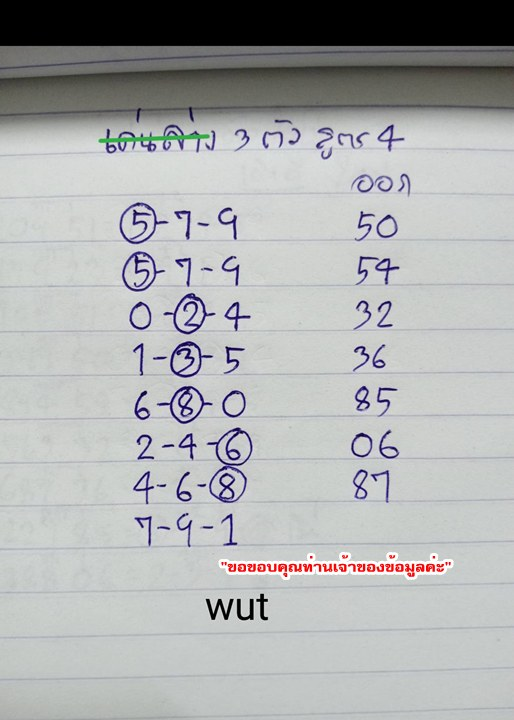 เด่นล่าง 3 ตัว สูตร 4
ออก
5-7-9 50
5-7-9 54
0-2-4 32
1-3-5 36
6-8-0 85
2-4-6 06
4-6-8 87
7-9-1
"ขอขอบคุณท่านเจ้าของข้อมูลค่ะ"
wut